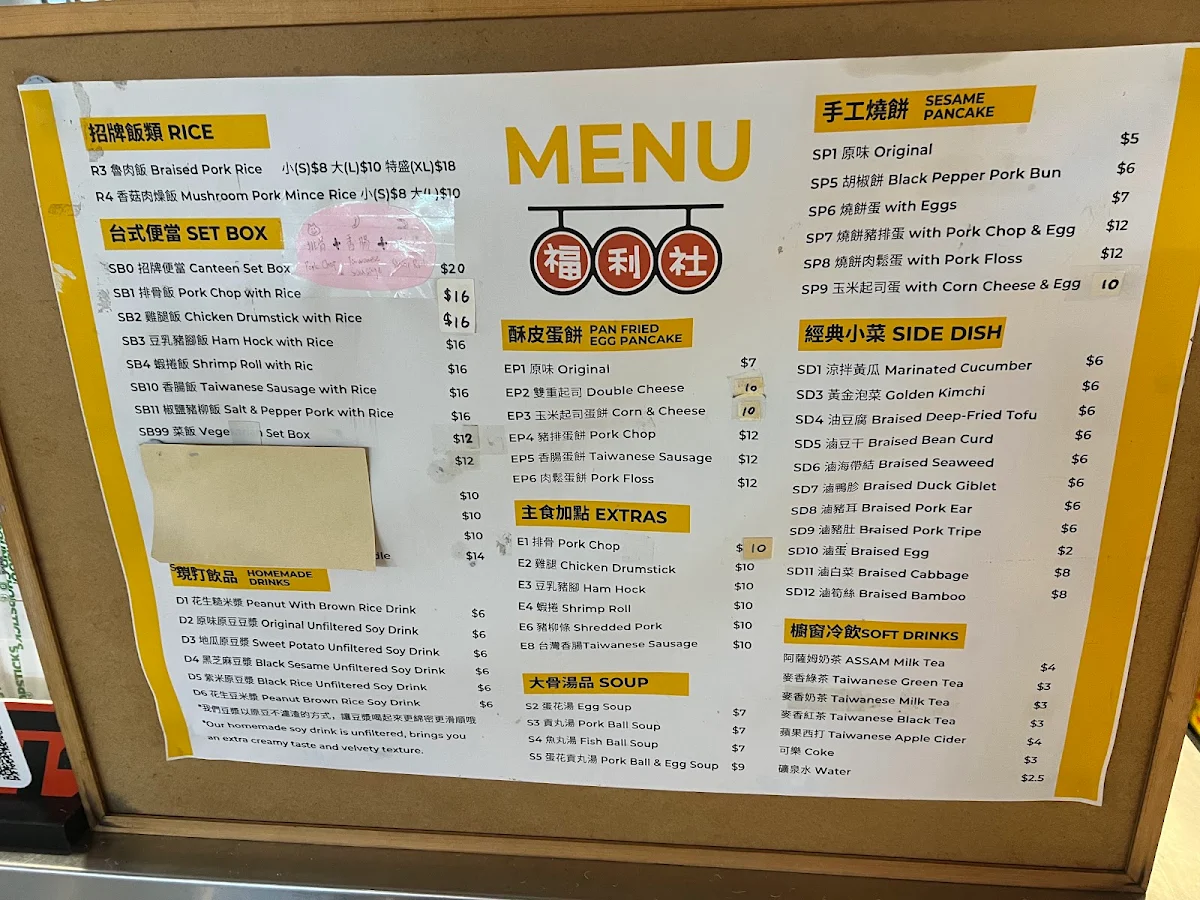 招牌飯類 RICE
R3 魯肉飯 Braised Pork Rice 小(S)$8 大(L)$10 特盛(XL)$18
R4 香菇肉燥飯 Mushroom Pork Mince Rice 小(S)$8 大(L)$10
台式便當 SET BOX
SB0 招牌便當 Canteen Set Box $20
SB1 排骨飯 Pork Chop with Rice $16
SB2 雞腿飯 Chicken Drumstick with Rice $16
SB3 豆乳豬腳飯 Ham Hock with Rice $16
SB4 蝦捲飯 Shrimp Roll with Ric $16
SB10 香腸飯 Taiwanese Sausage with Rice $16
SB11 椒鹽豬柳飯 Salt & Pepper Pork with Rice $16
SB99 菜飯 Vege Set Box $12
$12
$10
$10
$10
dle $14
現打飲品 HOMEMADE DRINKS
D1 花生糙米漿 Peanut With Brown Rice Drink $6
D2 原味原豆豆漿 Original Unfiltered Soy Drink $6
D3 地瓜原豆漿 Sweet Potato Unfiltered Soy Drink $6
D4 黑芝麻豆漿 Black Sesame Unfiltered Soy Drink $6
D5 紫米原豆漿 Black Rice Unfiltered Soy Drink $6
D6 花生豆米漿 Peanut Brown Rice Soy Drink $6
*我們豆漿以原豆不濾渣的方式，讓豆漿喝起來更綿密更滑順哦
*Our homemade soy drink is unfiltered, brings you
an extra creamy taste and velvety texture.
MENU
福利社
酥皮蛋餅 PAN FRIED EGG PANCAKE
EP1 原味 Original $7
EP2 雙重起司 Double Cheese 10
EP3 玉米起司蛋餅 Corn & Cheese 10
EP4 豬排蛋餅 Pork Chop $12
EP5 香腸蛋餅 Taiwanese Sausage $12
EP6 肉鬆蛋餅 Pork Floss $12
主食加點 EXTRAS
E1 排骨 Pork Chop $10
E2 雞腿 Chicken Drumstick $10
E3 豆乳豬腳 Ham Hock $10
E4 蝦捲 Shrimp Roll $10
E6 豬柳條 Shredded Pork $10
E8 台灣香腸Taiwanese Sausage $10
大骨湯品 SOUP
S2 蛋花湯 Egg Soup $7
S3 貢丸湯 Pork Ball Soup $7
S4 魚丸湯 Fish Ball Soup $7
S5 蛋花貢丸湯 Pork Ball & Egg Soup $9
手工燒餅 SESAME PANCAKE
SP1 原味 Original $5
SP5 胡椒餅 Black Pepper Pork Bun $6
SP6 燒餅蛋 with Eggs $7
SP7 燒餅豬排蛋 with Pork Chop & Egg $12
SP8 燒餅肉鬆蛋 with Pork Floss $12
SP9 玉米起司蛋 with Corn Cheese & Egg 10
經典小菜 SIDE DISH
SD1 涼拌黃瓜 Marinated Cucumber $6
SD3 黃金泡菜 Golden Kimchi $6
SD4 油豆腐 Braised Deep-Fried Tofu $6
SD5 滷豆干 Braised Bean Curd $6
SD6 滷海帶結 Braised Seaweed $6
SD7 滷鴨胗 Braised Duck Giblet $6
SD8 滷豬耳 Braised Pork Ear $6
SD9 滷豬肚 Braised Pork Tripe $6
SD10 滷蛋 Braised Egg $2
SD11 滷白菜 Braised Cabbage $8
SD12 滷筍絲 Braised Bamboo $8
櫥窗冷飲SOFT DRINKS
阿薩姆奶茶 ASSAM Milk Tea $4
麥香綠茶 Taiwanese Green Tea $3
麥香奶茶 Taiwanese Milk Tea $3
麥香紅茶 Taiwanese Black Tea $3
蘋果西打 Taiwanese Apple Cider $4
可樂 Coke $3
礦泉水 Water $2.5